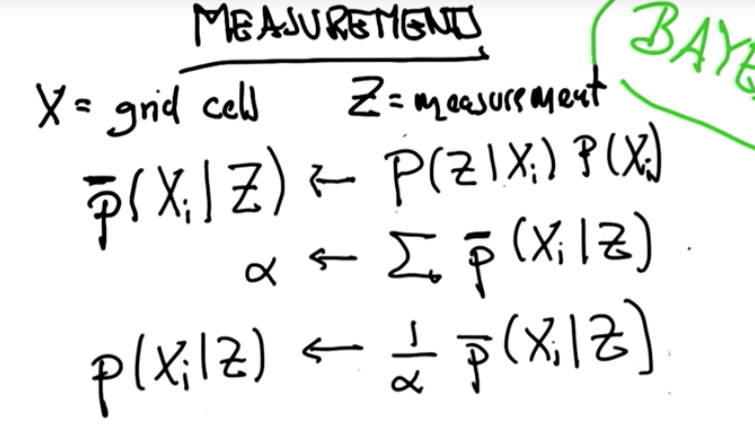 MEASUREMENTS BAYE
X = grid cell Z = measurement
p̄(Xᵢ|Z) ← P(Z|Xᵢ) P(Xᵢ)
α ← Σ p̄(Xᵢ|Z)
p(Xᵢ|Z) ← 1/α p̄(Xᵢ|Z)